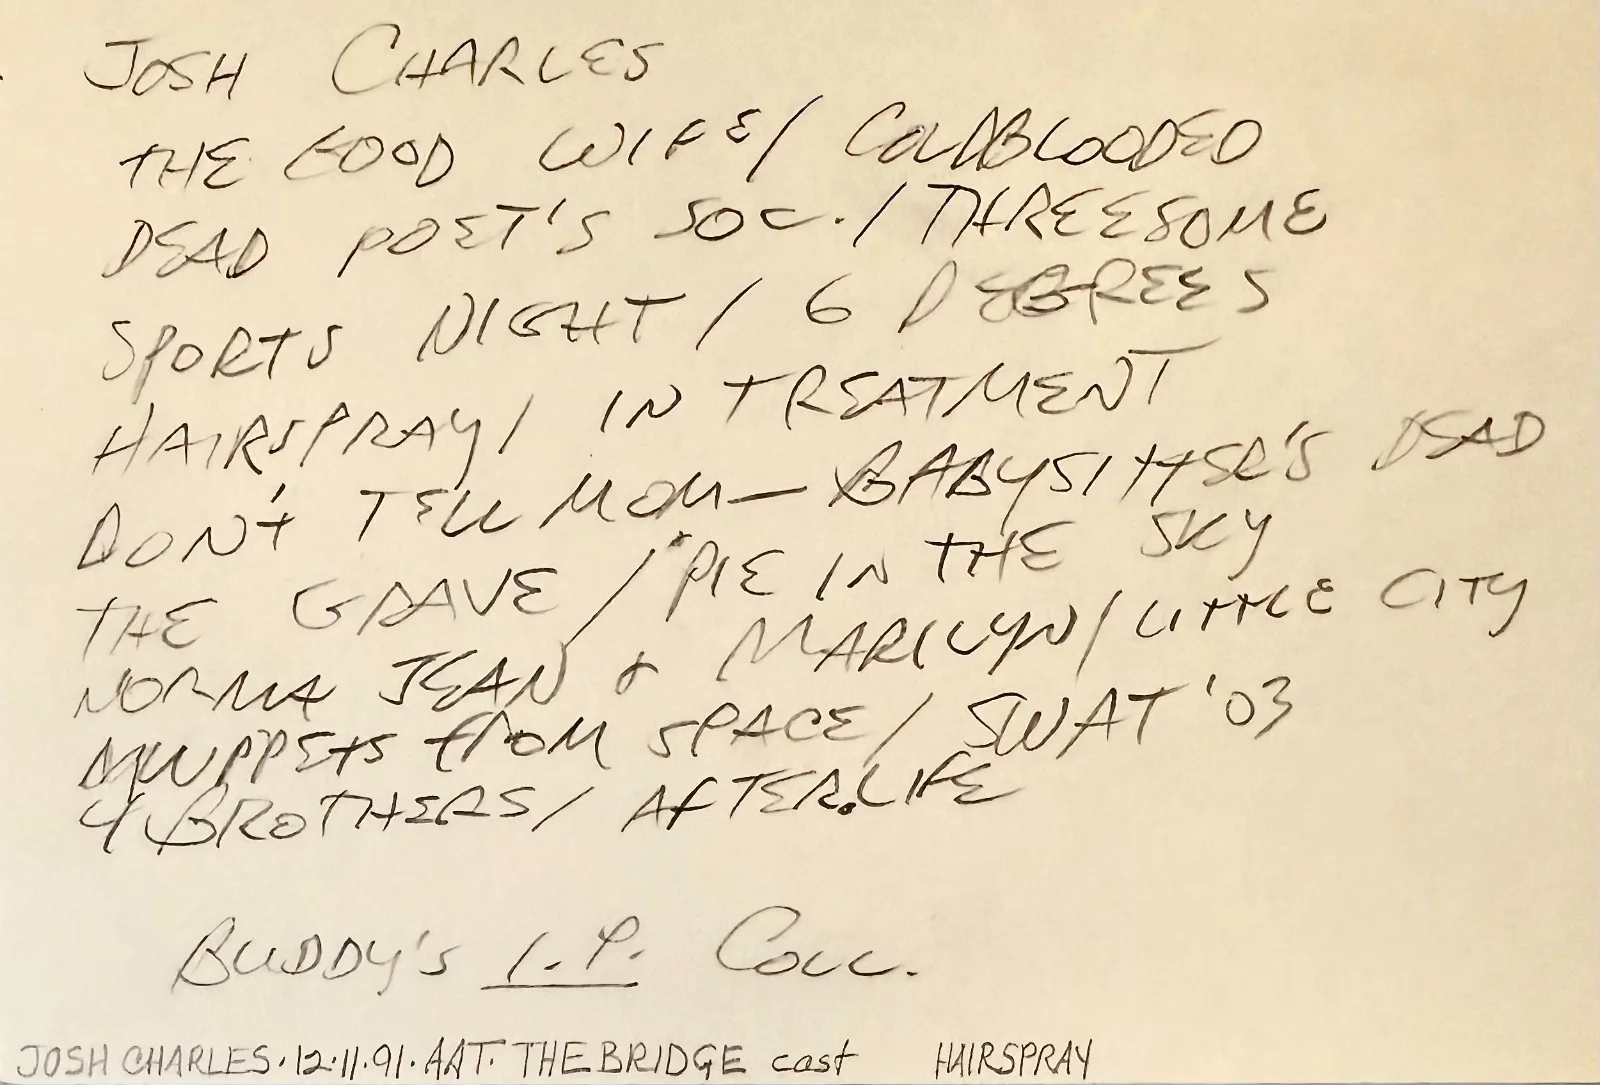 JOSH CHARLES
THE GOOD WIFE / COLDBLOODED
DEAD POET'S SOC. / THREESOME
SPORTS NIGHT / 6 DEGREES
HAIRSPRAY / IN TREATMENT
DON'T TELL MOM — BABYSITTER'S DEAD
THE GRAVE / PIE IN THE SKY
NORMA JEAN & MARILYN / LITTLE CITY
MUPPETS FROM SPACE / SWAT '03
4 BROTHERS / AFTER.LIFE
BUDDY'S I.P. COLL.
JOSH CHARLES · 12·11·91 · AAT · THE BRIDGE cast HAIRSPRAY